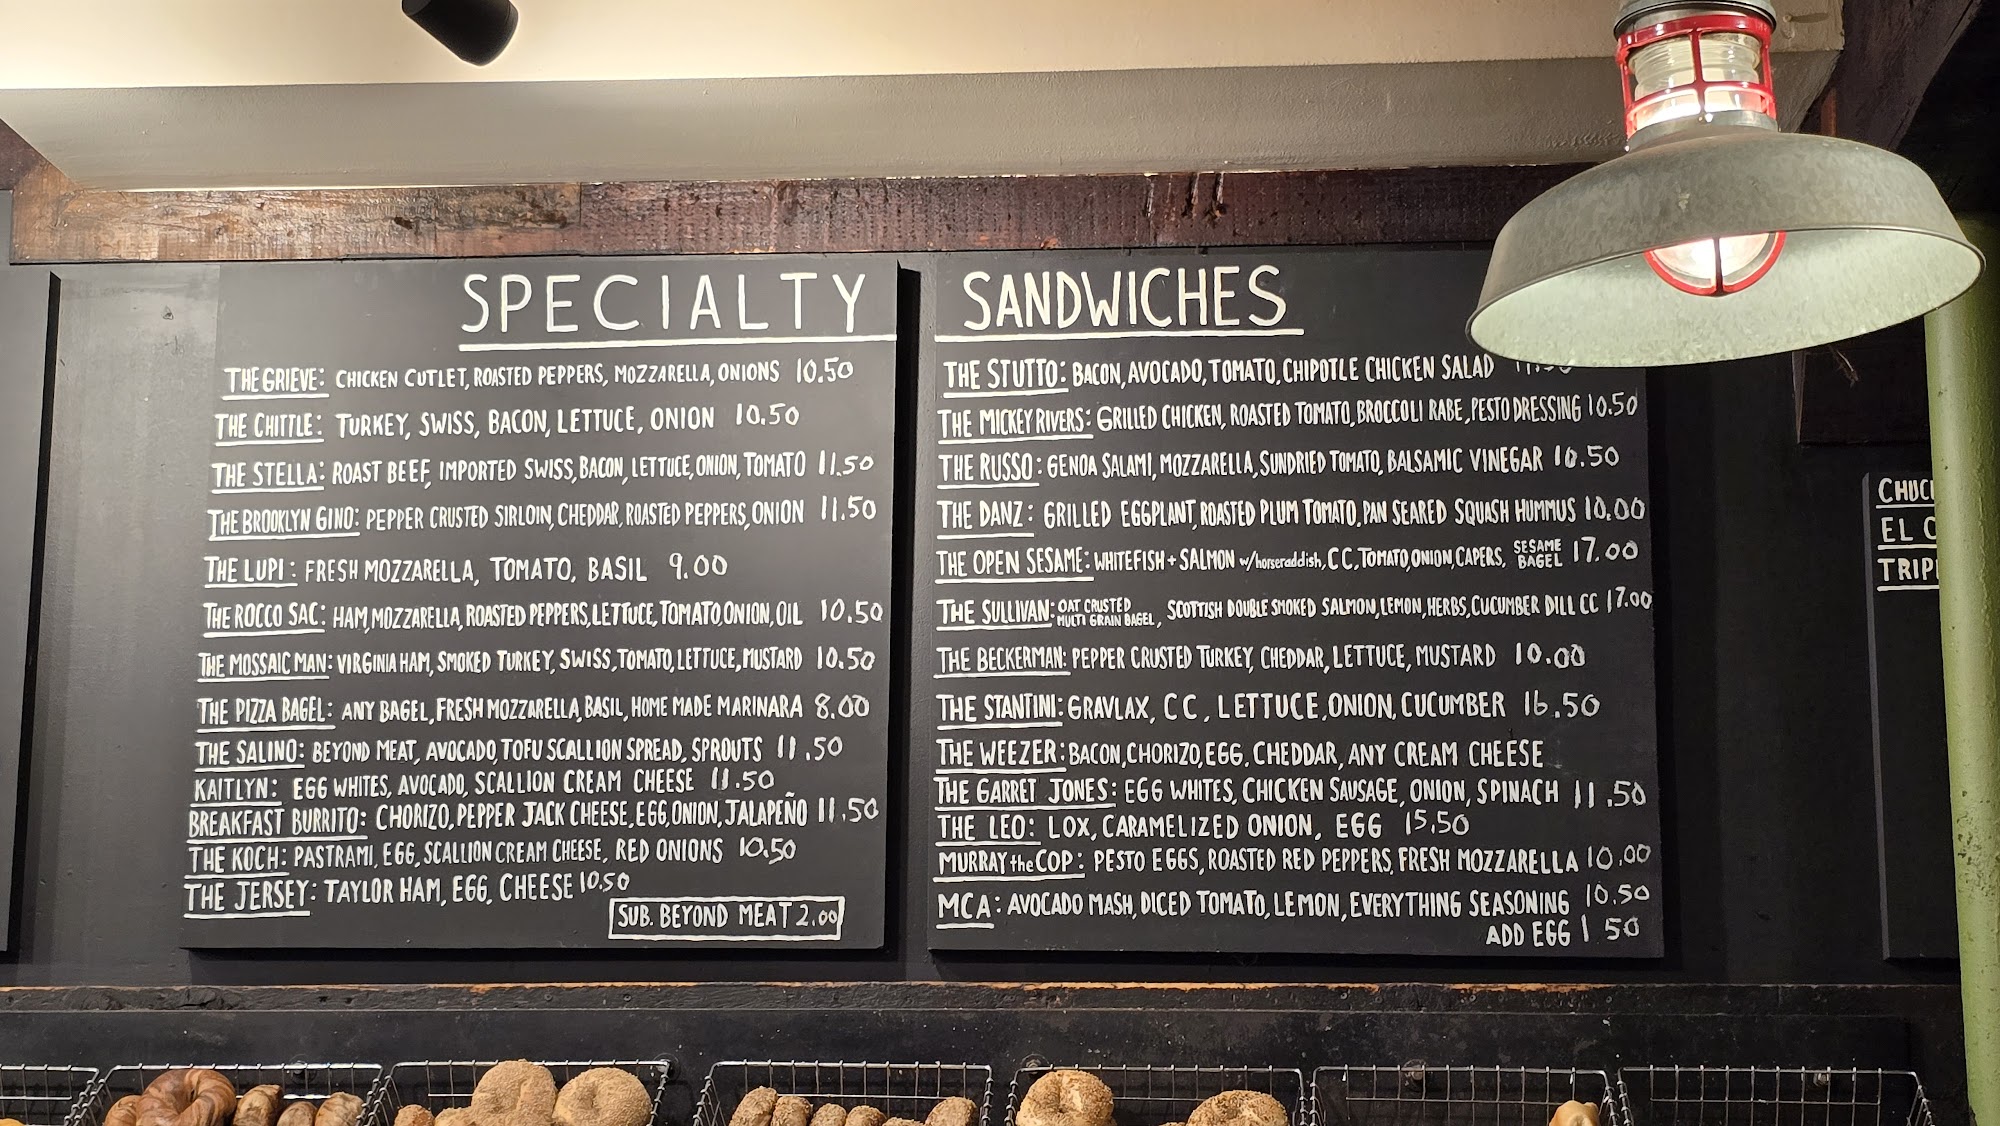 SPECIALTY
THE GRIEVE: CHICKEN CUTLET, ROASTED PEPPERS, MOZZARELLA, ONIONS 10.50
THE CHITTLE: TURKEY, SWISS, BACON, LETTUCE, ONION 10.50
THE STELLA: ROAST BEEF, IMPORTED SWISS, BACON, LETTUCE, ONION, TOMATO 11.50
THE BROOKLYN GINO: PEPPER CRUSTED SIRLOIN, CHEDDAR, ROASTED PEPPERS, ONION 11.50
THE LUPI: FRESH MOZZARELLA, TOMATO, BASIL 9.00
THE ROCCO SAC: HAM, MOZZARELLA, ROASTED PEPPERS, LETTUCE, TOMATO, ONION, OIL 10.50
THE MOSSAIC MAN: VIRGINIA HAM, SMOKED TURKEY, SWISS, TOMATO, LETTUCE, MUSTARD 10.50
THE PIZZA BAGEL: ANY BAGEL, FRESH MOZZARELLA, BASIL, HOME MADE MARINARA 8.00
THE SALINO: BEYOND MEAT, AVOCADO, TOFU SCALLION SPREAD, SPROUTS 11.50
KAITLYN: EGG WHITES, AVOCADO, SCALLION CREAM CHEESE 11.50
BREAKFAST BURRITO: CHORIZO, PEPPER JACK CHEESE, EGG, ONION, JALAPEÑO 11.50
THE KOCH: PASTRAMI, EGG, SCALLION CREAM CHEESE, RED ONIONS 10.50
THE JERSEY: TAYLOR HAM, EGG, CHEESE 10.50
SUB. BEYOND MEAT 2.00
SANDWICHES
THE STUTTO: BACON, AVOCADO, TOMATO, CHIPOTLE CHICKEN SALAD
THE MICKEY RIVERS: GRILLED CHICKEN, ROASTED TOMATO, BROCCOLI RABE, PESTO DRESSING 10.50
THE RUSSO: GENOA SALAMI, MOZZARELLA, SUNDRIED TOMATO, BALSAMIC VINEGAR 10.50
THE DANZ: GRILLED EGGPLANT, ROASTED PLUM TOMATO, PAN SEARED SQUASH HUMMUS 10.00
THE OPEN SESAME: WHITEFISH + SALMON w/horseraddish, CC, TOMATO, ONION, CAPERS, SESAME BAGEL 17.00
THE SULLIVAN: OAT CRUSTED MULTI GRAIN BAGEL, SCOTTISH DOUBLE SMOKED SALMON, LEMON, HERBS, CUCUMBER DILL CC 17.00
THE BECKERMAN: PEPPER CRUSTED TURKEY, CHEDDAR, LETTUCE, MUSTARD 10.00
THE STANTINI: GRAVLAX, CC, LETTUCE, ONION, CUCUMBER 16.50
THE WEEZER: BACON, CHORIZO, EGG, CHEDDAR, ANY CREAM CHEESE
THE GARRET JONES: EGG WHITES, CHICKEN SAUSAGE, ONION, SPINACH 11.50
THE LEO: LOX, CARAMELIZED ONION, EGG 15.50
MURRAY the COP: PESTO EGGS, ROASTED RED PEPPERS, FRESH MOZZARELLA 10.00
MCA: AVOCADO MASH, DICED TOMATO, LEMON, EVERYTHING SEASONING 10.50
ADD EGG 1 50
EL